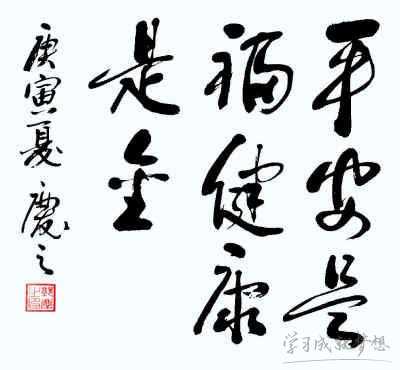 平安是
福健康
是金
庚寅夏慶之
学习成就梦想